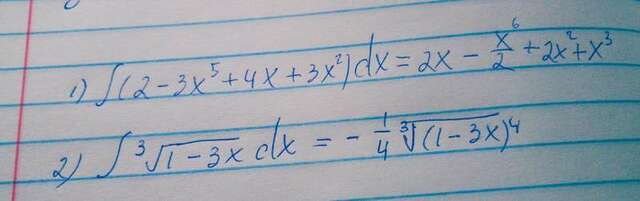 1) ∫(2-3x⁵+4x+3x²)dx = 2x - x⁶/2 + 2x² + x³
2) ∫ ³√(1-3x) dx = - 1/4 ³√((1-3x)⁴)